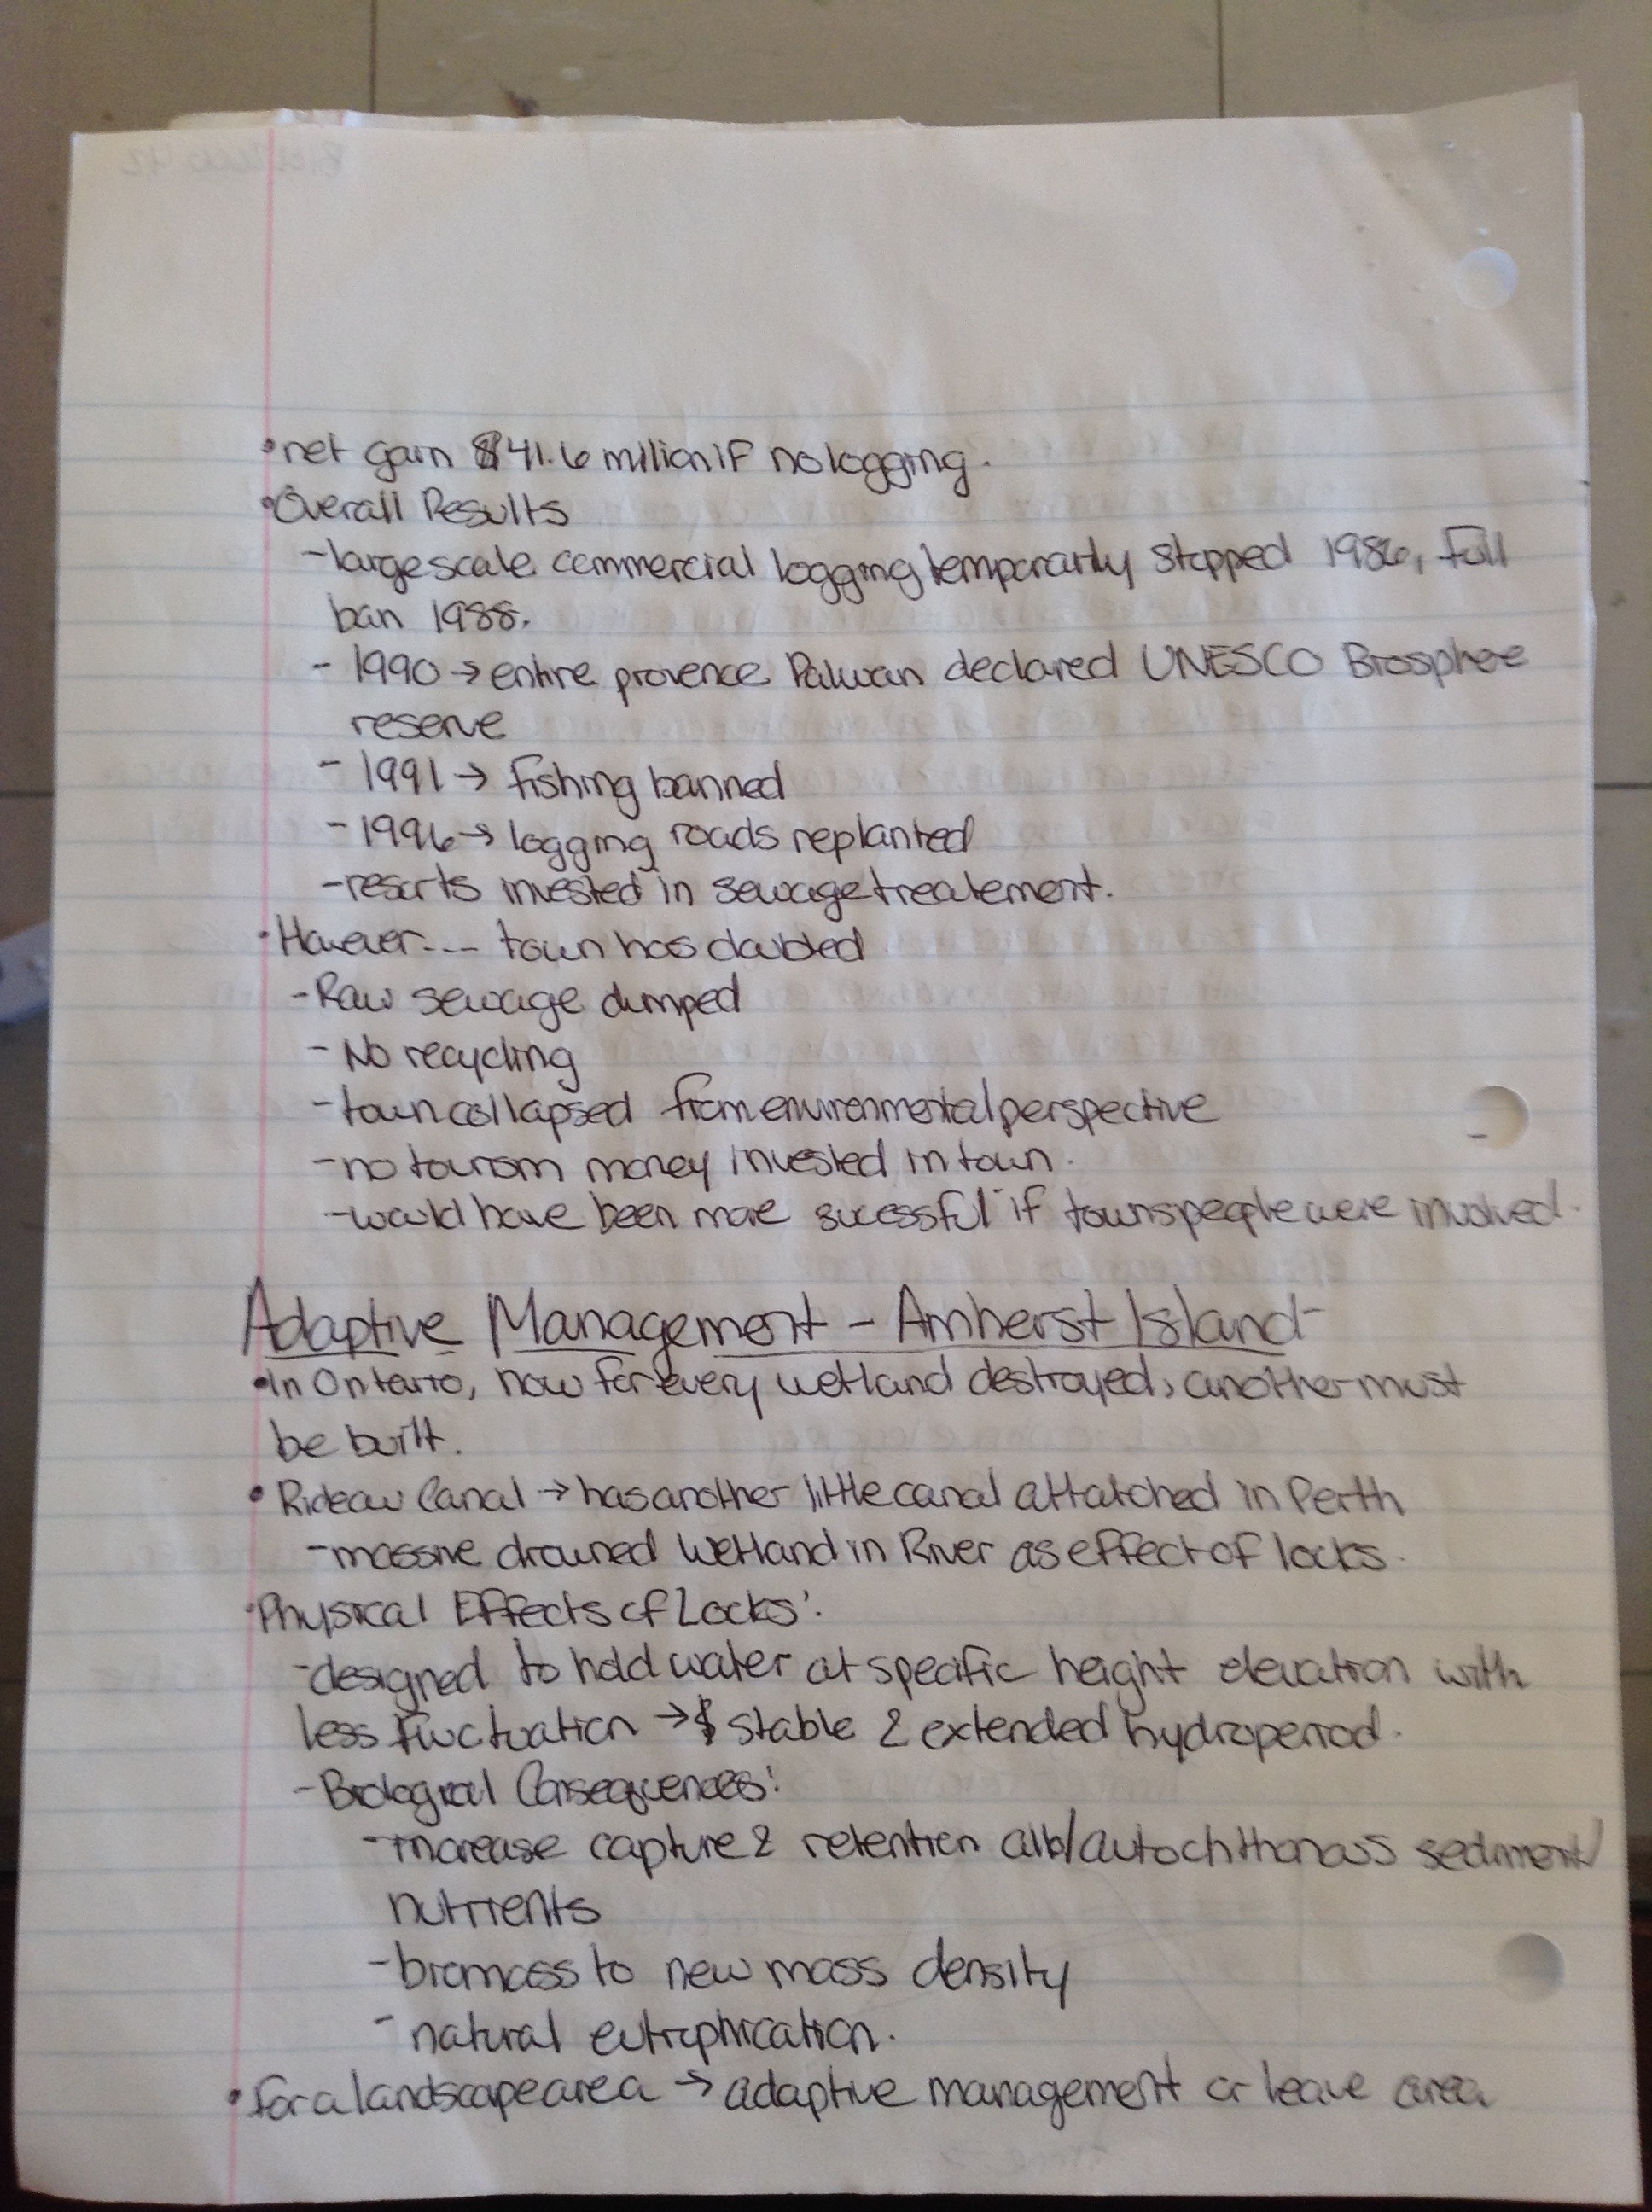 •net gain $41.6 million if no logging.
•Overall Results
-large scale commercial logging temporarily stopped 1986, full
ban 1988.
- 1990 → entire provence Palwan declared UNESCO Biosphere
reserve
- 1991 → fishing banned
- 1996 → logging roads replanted
-resorts invested in sewage treatement.
•However--- town has doubled
-Raw sewage dumped
- No recycling
-town collapsed from environmental perspective
-no tourism money invested in town.
-would have been more sucessful if townspeople were involved.
Adaptive Management - Amherst Island
•In Ontario, now for every wetland destroyed, another must
be built.
• Rideau Canal → has another little canal attatched in Perth
-massive drowned wetland in River as effect of locks.
•Physical Effects of Locks:
-designed to hold water at specific height elevation with
less fluctuation → stable & extended hydroperiod.
-Biological Consequences:
-increase capture & retention allo/autochthonous sediment/
nutrients
-biomass to new mass density
- natural eutrophication.
• for a landscape area → adaptive management or leave area